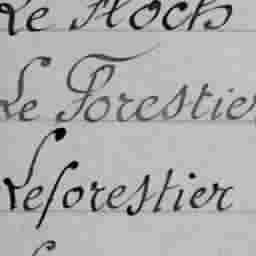 Le Floch
Le Forestier
Leforestier